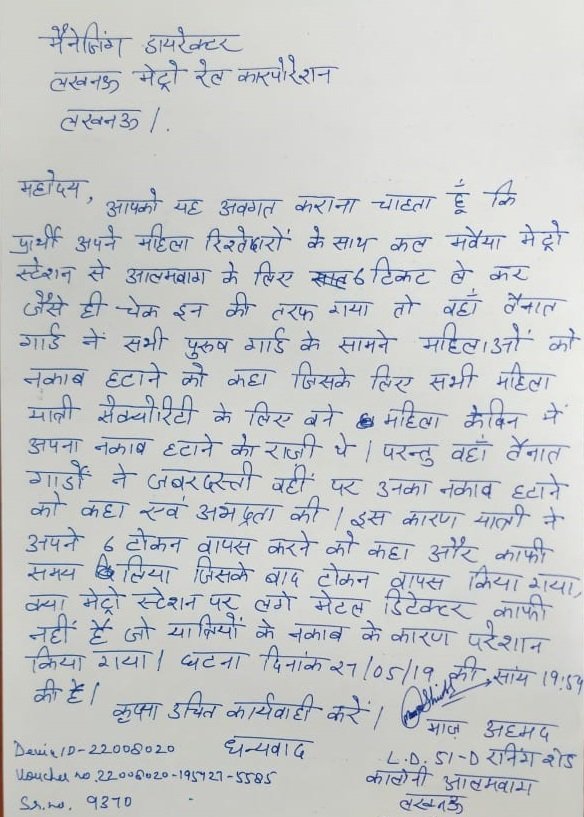 मैनेजिंग डायरेक्टर
लखनऊ मेट्रो रेल कारपोरेशन
लखनऊ।
महोदय,
आपको यह अवगत कराना चाहता हूँ कि
प्रार्थी अपने महिला रिश्तेदारों के साथ कल मवैया मेट्रो
स्टेशन से आलमबाग के लिए 6 टिकट ले कर
जैसे ही चेक इन की तरफ गया तो वहाँ तैनात
गार्ड नें सभी पुरुष गार्ड के सामने महिलाओं को
नकाब हटाने को कहा जिसके लिए सभी महिला
यात्री सैक्योरिटी के लिए बने महिला केबिन में
अपना नकाब हटाने को राजी थे। परन्तु वहाँ तैनात
गार्डों ने जबरदस्ती वहीं पर उनका नकाब हटाने
को कहा एवं अभद्रता की। इस कारण यात्री ने
अपने 6 टोकन वापस करने को कहा और काफी
समय लिया जिसके बाद टोकन वापस किया गया,
क्या मेट्रो स्टेशन पर लगे मेटल डिटेक्टर काफी
नहीं हैं जो यात्रियों के नकाब के कारण परेशान
किया गया। घटना दिनांक 27/05/19 की सांय 19:54
की है।
कृप्या उचित कार्यवाही करें।
धन्यवाद
माज़ अहमद
L.D. 51-D रनिंग शेड
कालोनी आलमबाग
लखनऊ
Device ID - 22006020
Voucher no. 22006020-195727-5585
Sr. no. 9370